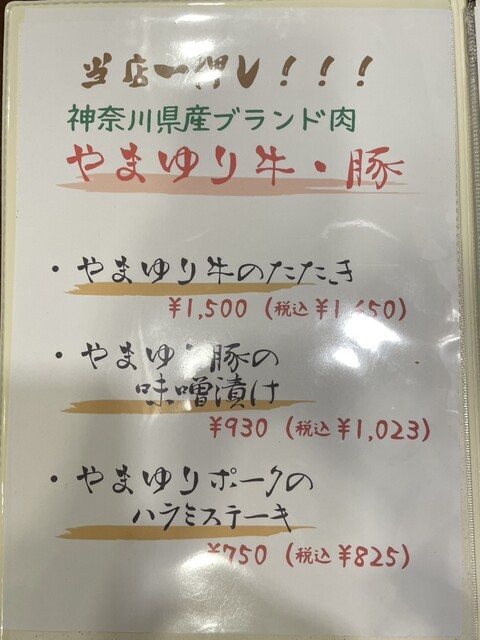 当店一押し!!!
神奈川県産ブランド肉
やまゆり牛・豚
・やまゆり牛のたたき
¥1,500 (税込¥1,650)
・やまゆり豚の
味噌漬け
¥930 (税込¥1,023)
・やまゆりポークの
ハラミステーキ
¥750 (税込¥825)